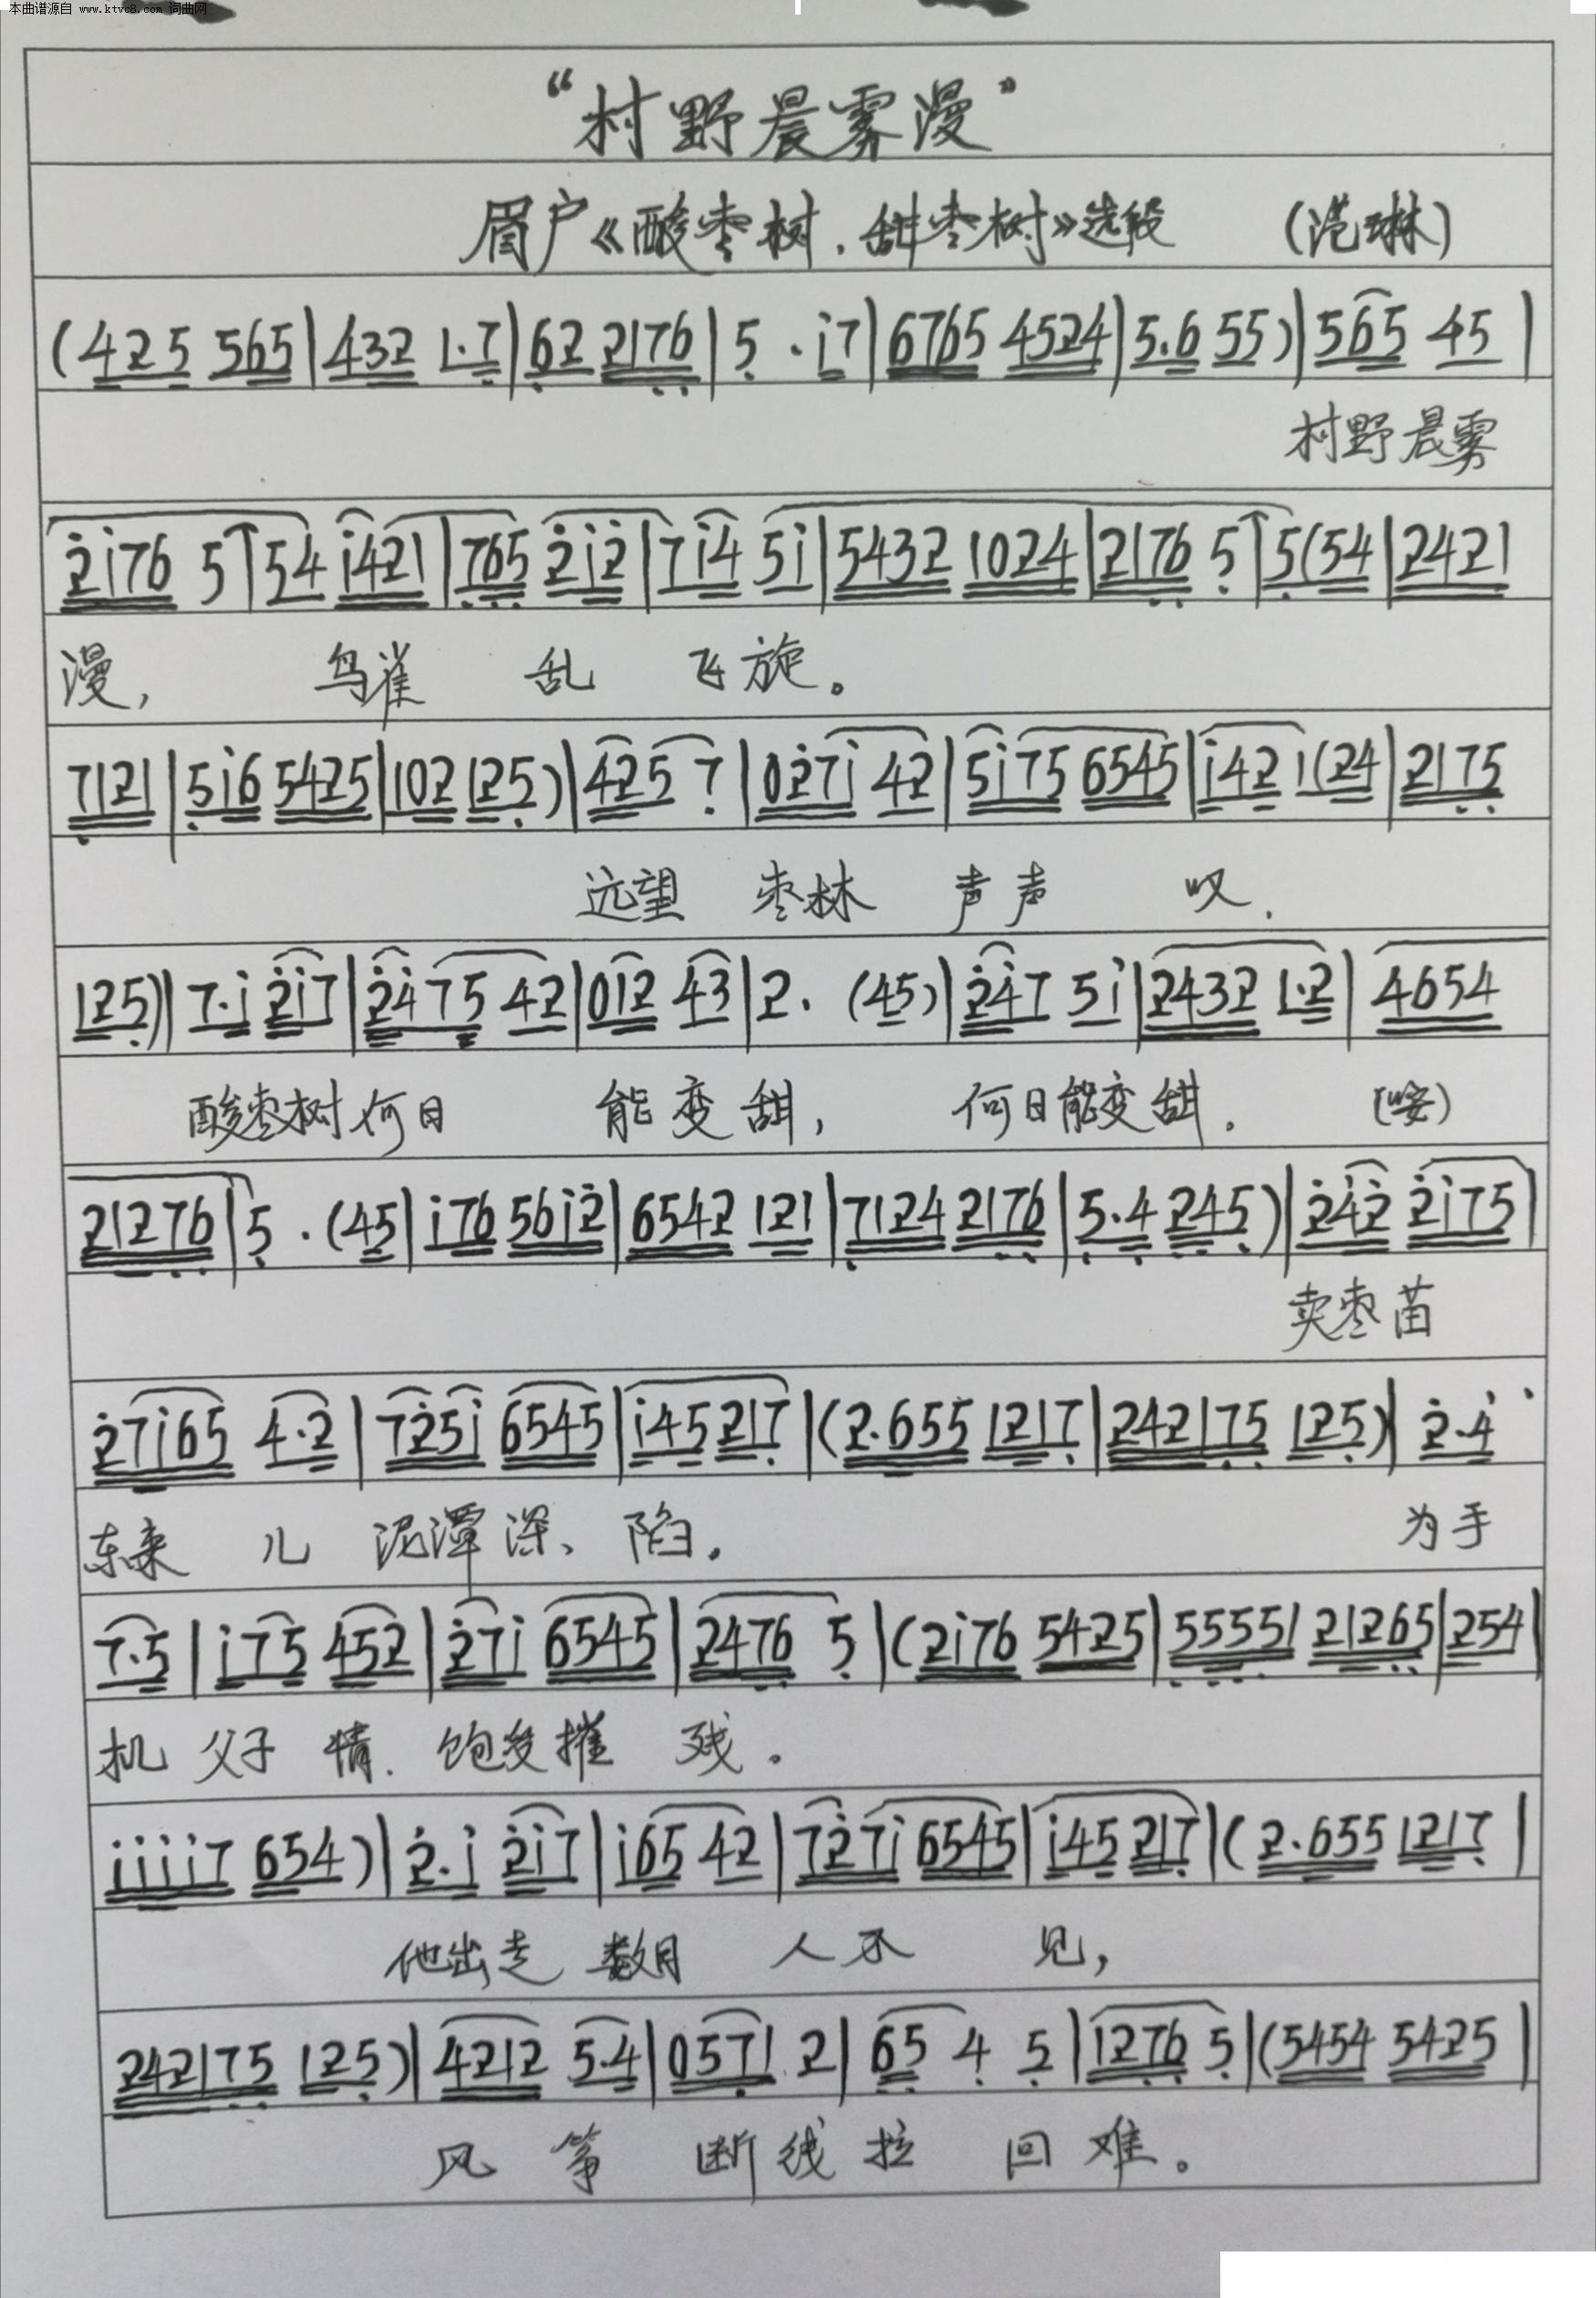 本曲谱源自 www.ktvc8.com 词曲网
“村野晨雾漫”
眉户《酸枣树.甜枣树》选段 (范琳)
(425 565|432 1·7|62 2176|5 ·i7|6765 4524|5.6 55)|565 45|
村野晨雾
2i76 5|54 i421|765 2i2|7i4 5i|5432 1024|2176 5|5(54|2421
漫, 鸟雀 乱 飞旋。
7121|5i6 5425|102 125)|425 7|027i 42|5i75 6545|i42 1(24|2175
远望 枣林 声声 叹.
125)|7·i 2i7|2475 42|012 43|2· (45)|247 5i|2432 1·2|4654
酸枣树何日 能变甜, 何日能变甜. (咹)
21276|5 ·(45|i76 56i2|6542 121|7124 2176|5·4 245)|242 2i75|
卖枣苗
27i65 4·2|725i 6545|i45217|(2·655 1217|242175 125)|2·4
东来 儿 泥潭深、陷. 为手
7·5|i75 452|27i 6545|2476 5|(2i76 5425|55551 21265|254|
机 父子 情. 饱受摧 残.
iiii7 654)|2·i 2i7|i65 42|727i 6545|i45 217|(2·655 1217|
他出走 数月 人不 见,
242175 125)|4212 5·4|0571 2|65 4 5|1276 5|(5454 5425|
风 筝 断线拉 回难。